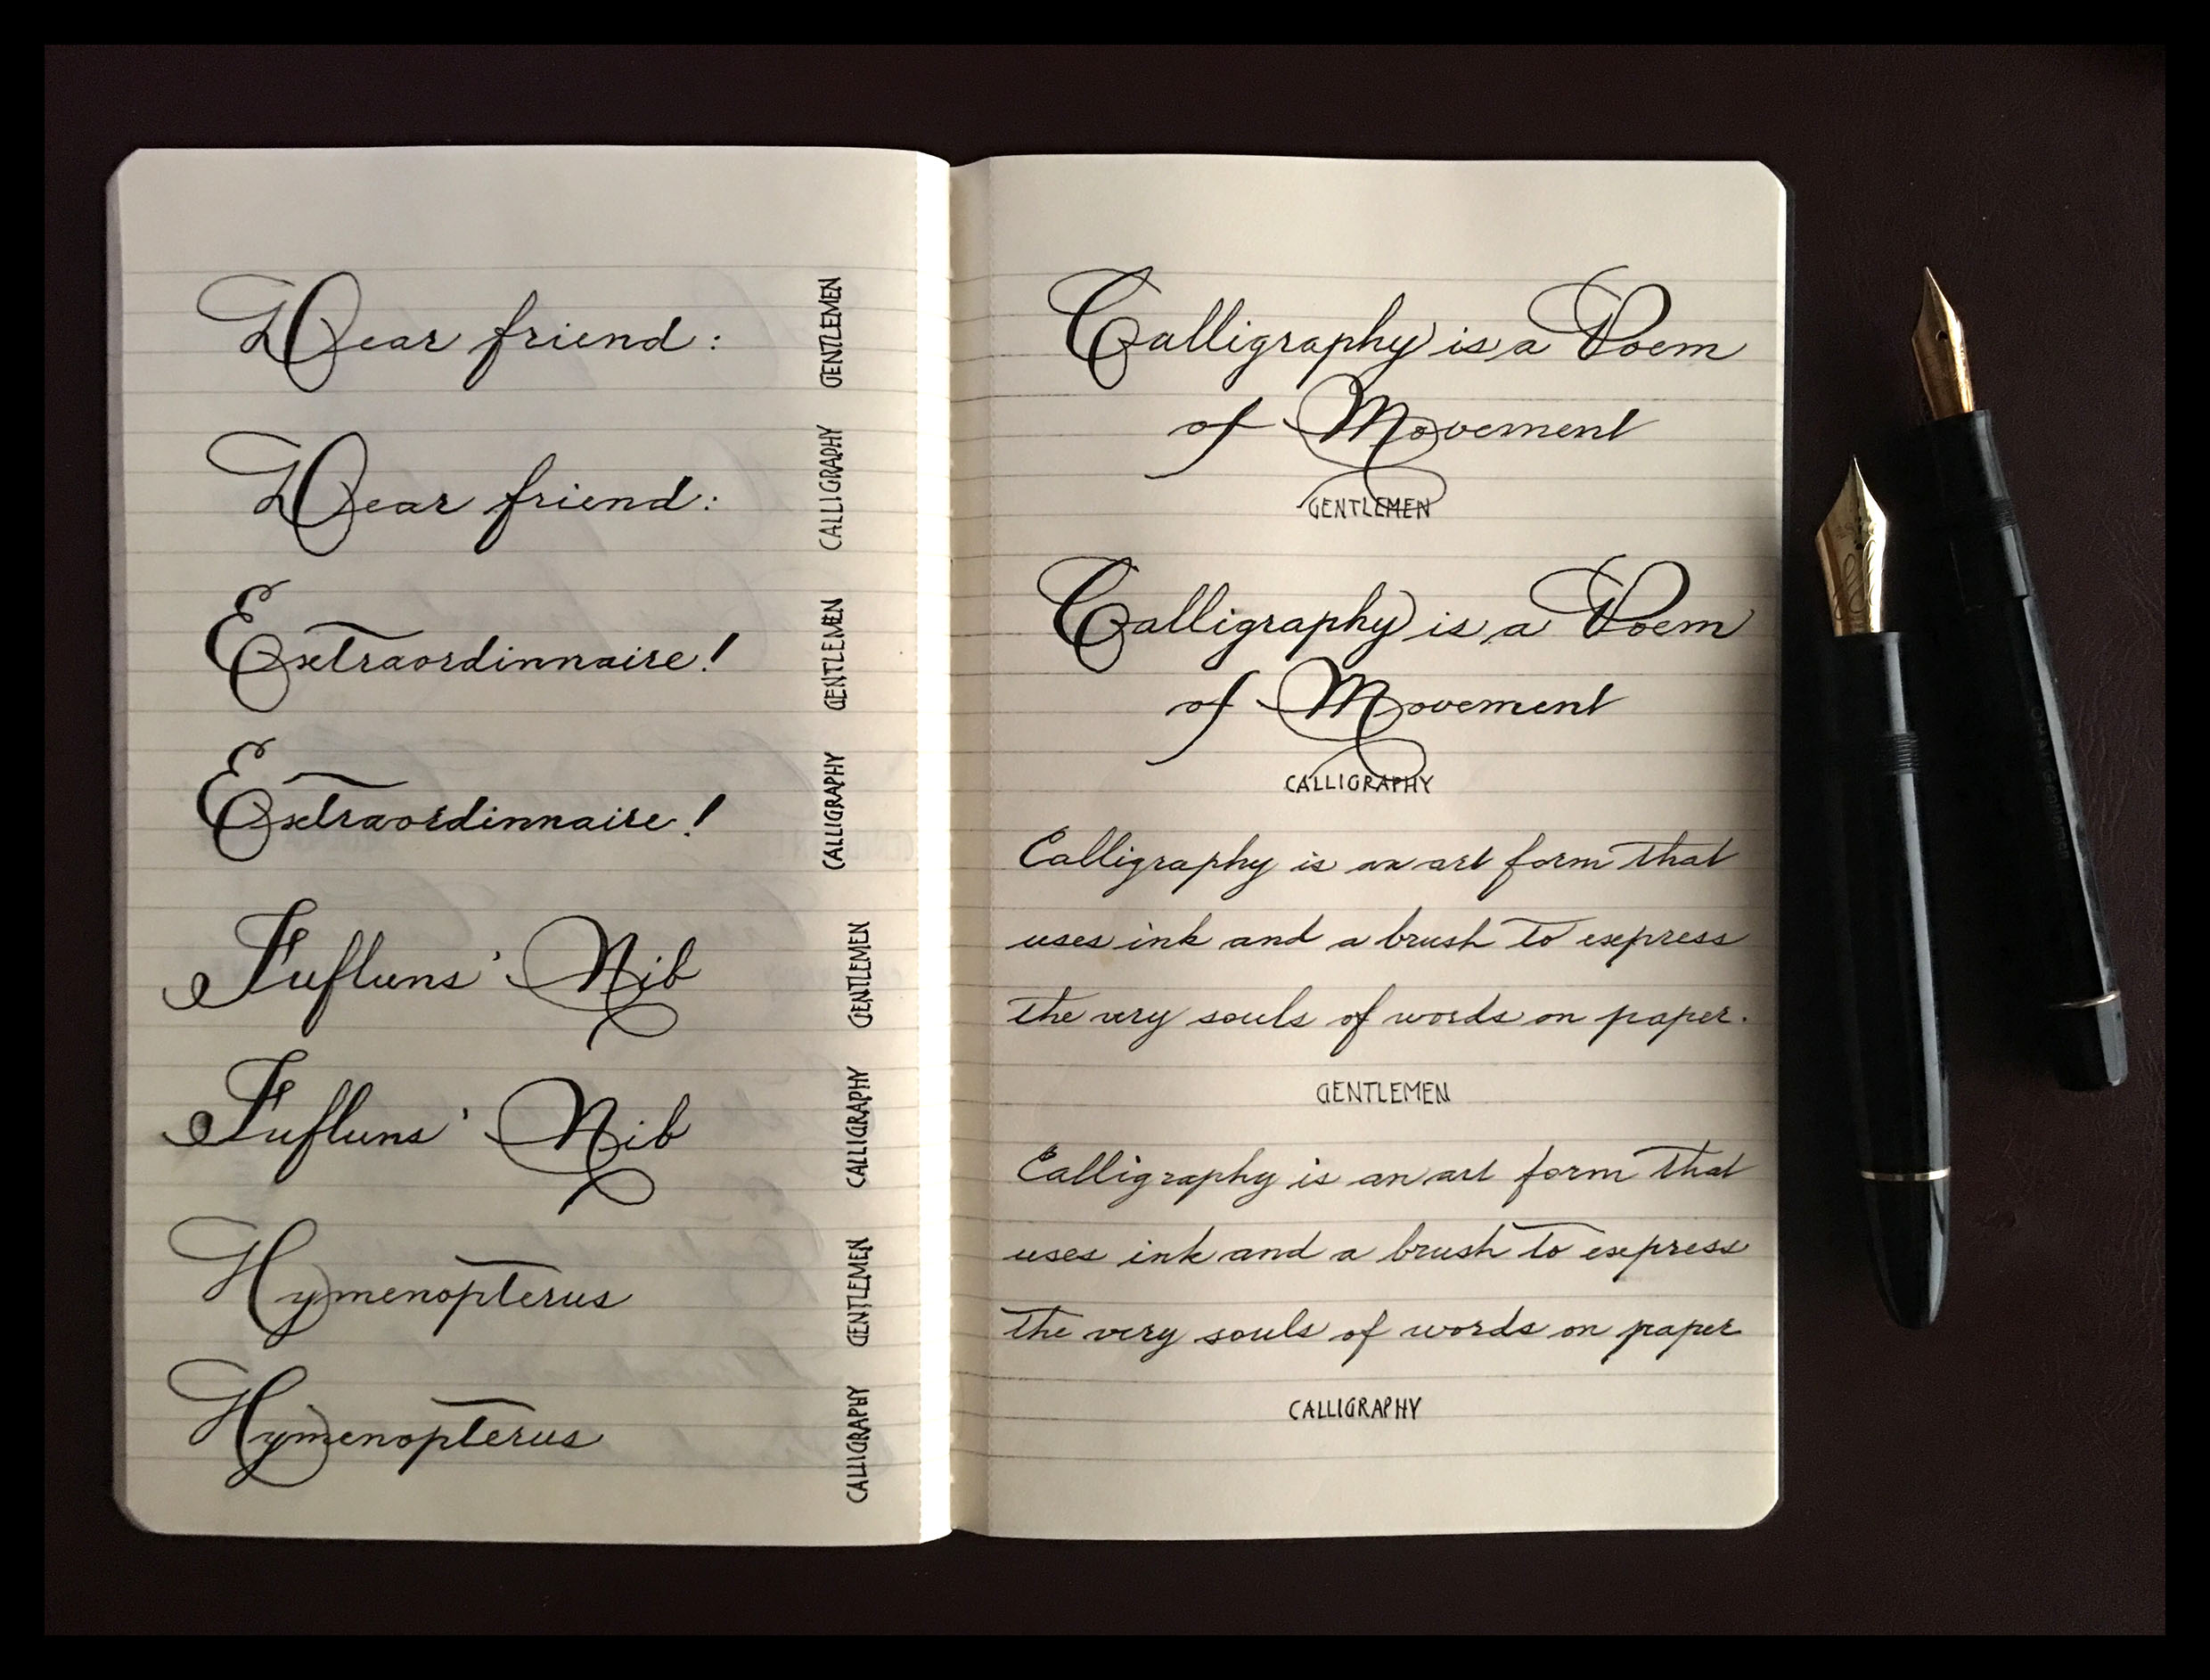 Dear friend:
GENTLEMEN
Dear friend:
CALLIGRAPHY
Extraordinnaire!
GENTLEMEN
Extraordinnaire!
CALLIGRAPHY
Fufluns' Nib
GENTLEMEN
Fufluns' Nib
CALLIGRAPHY
Hymenopterus
GENTLEMEN
Hymenopterus
CALLIGRAPHY
Calligraphy is a Poem
of Movement
GENTLEMEN
Calligraphy is a Poem
of Movement
CALLIGRAPHY
Calligraphy is an art form that
uses ink and a brush to express
the very souls of words on paper.
GENTLEMEN
Calligraphy is an art form that
uses ink and a brush to express
the very souls of words on paper
CALLIGRAPHY